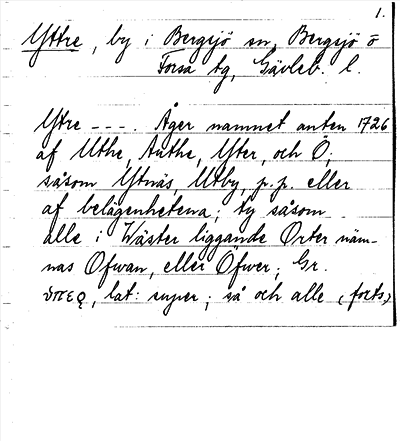 1.
Yttre, by i Bergsjö sn, Bergsjö o
Forsa tg, Gävleb. l.
Ytre - - - . Äger namnet anten 1726
af Uthe, Authe, Yter, och Ö;
såsom Ytnäs, Utby, p.p. eller
af belägenhetena; ty såsom
alle i Wäster liggande Orter näm-
nas Ofwan, eller Öfwer; Gr.
ὑπερ, lat: super; så och alle (forts.)